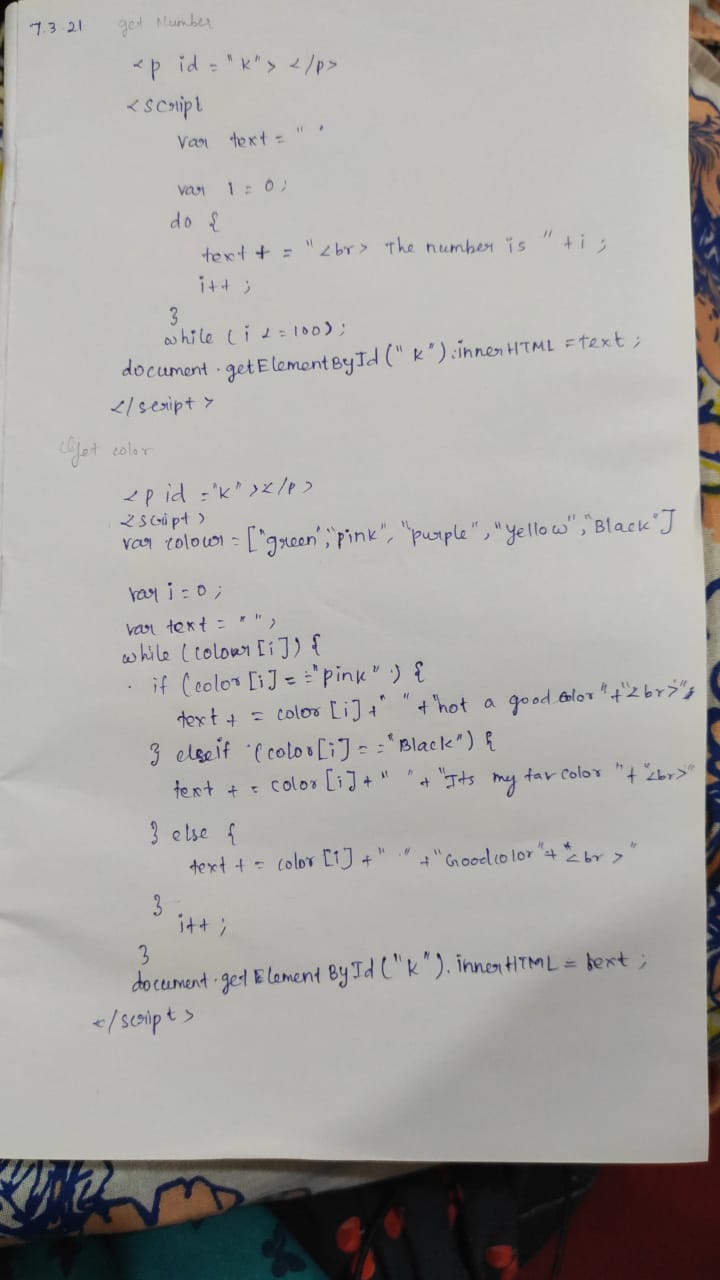 7.3.21 get Number
<p id = "K"> </p>
<script
var text = " '
var i = 0;
do {
text + = "<br> The number is " + i ;
i++ ;
}
while ( i <= 100);
document.getElementById ("K").innerHTML = text ;
</script>
Get color
<p id ="K"></p>
<script>
var colour = ["green", "pink", "purple", "Yellow", "Black"]
var i = 0 ;
var text = " ";
while (colour [i]) {
if (color [i] = = "pink" ) {
text + = color [i] + " " + "not a good color" + "<br>";
} elseif (color[i] = = "Black") {
text + = color [i] + " " + "Its my fav color " + "<br>"
} else {
text + = color [i] + " " + "Goodcolor" + "<br>"
}
i++ ;
}
document.getElementById ("K"). innerHTML = text ;
</script>